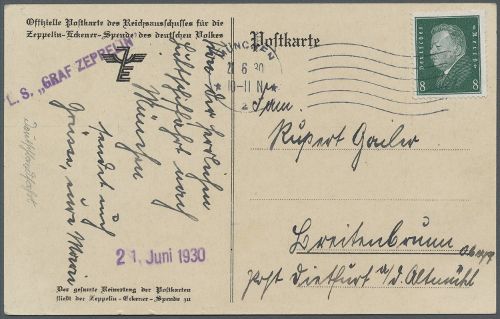 Offizielle Postkarte des Reichsausschusses für die
Zeppelin-Eckener-Spende des deutschen Volkes
Postkarte
L. S. „GRAF ZEPPELIN
ZE
MÜNCHEN
21 6 30
10-11 N
2
DEUTSCHES REICH
8 8
Von der herrlichen
Luftschiffahrt nach
München
sendet euch
Grüsse, eure Maria
Deutschlandfahrt
Fam.
Rupert Gailer
Breitenbrunn
Post Dietfurt a/d. Altmühl
21. Juni 1930
Der gesamte Reinertrag der Postkarten
fließt der Zeppelin-Eckener-Spende zu